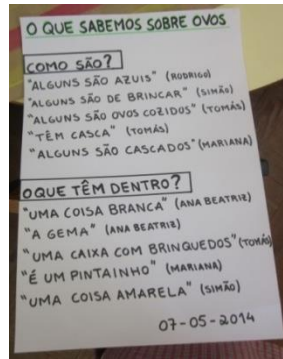 O QUE SABEMOS SOBRE OVOS
COMO SÃO?
"ALGUNS SÃO AZUIS" (RODRIGO)
"ALGUNS SÃO DE BRINCAR" (SIMÃO)
"ALGUNS SÃO OVOS COZIDOS" (TOMÁS)
"TÊM CASCA" (TOMÁS)
"ALGUNS SÃO CASCADOS" (MARIANA)
O QUE TÊM DENTRO?
"UMA COISA BRANCA" (ANA BEATRIZ)
"A GEMA" (ANA BEATRIZ)
"UMA CAIXA COM BRINQUEDOS" (TOMÁS)
"É UM PINTAINHO" (MARIANA)
"UMA COISA AMARELA" (SIMÃO)
07-05-2014